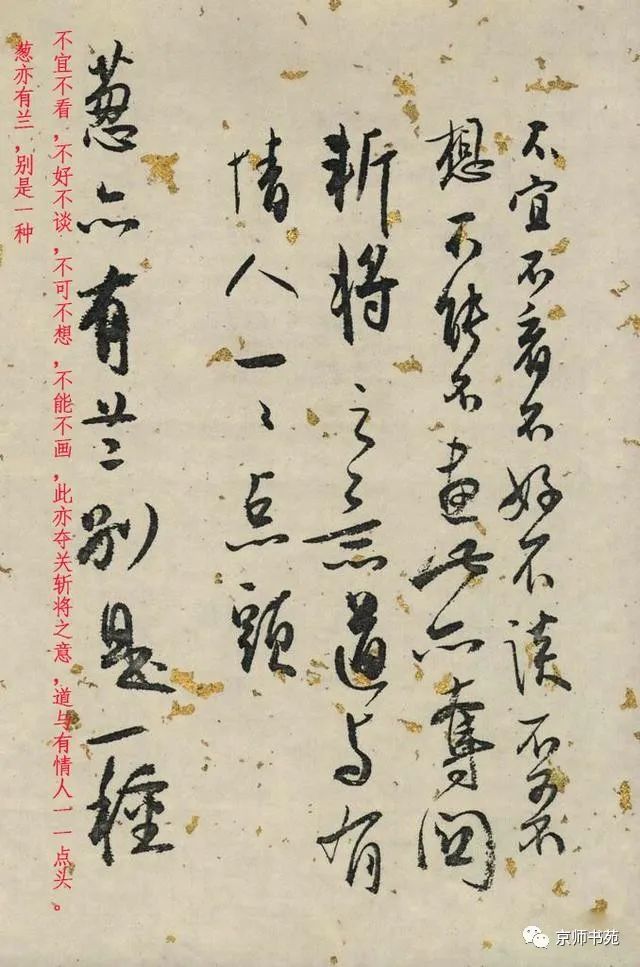 不宜不看不好不談不可不
想不能不畫此亦奪関
斬将之意道与有
情人一々点頭
葱亦有兰別是一種
不宜不看，不好不谈，不可不想，不能不画，此亦夺关斩将之意，道与有情人一一点头。
葱亦有兰，别是一种
京师书苑